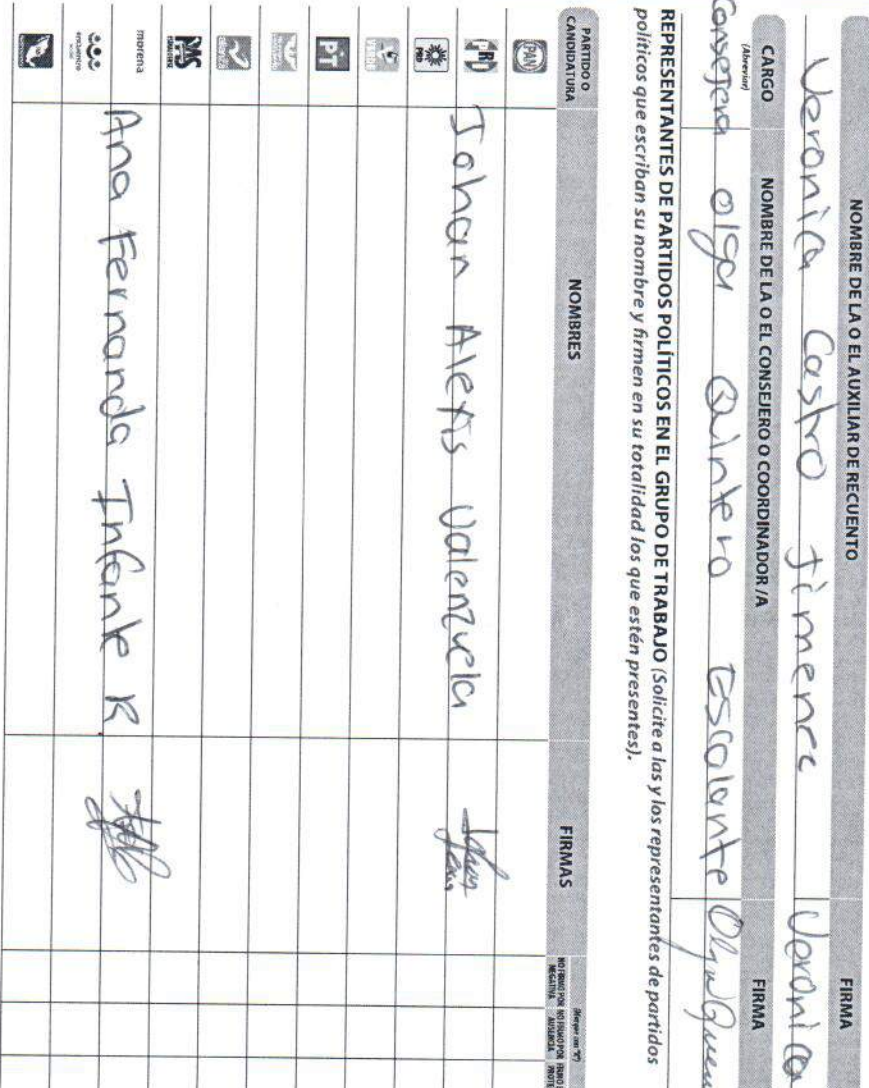 NOMBRE DE LA O EL AUXILIAR DE RECUENTO FIRMA
Veronica Castro Jimenez Veronica
CARGO (Abreviar) NOMBRE DE LA O EL CONSEJERO O COORDINADOR /A FIRMA
Consejera Olga Quintero Escalante
REPRESENTANTES DE PARTIDOS POLÍTICOS EN EL GRUPO DE TRABAJO (Solicite a las y los representantes de partidos
políticos que escriban su nombre y firmen en su totalidad los que estén presentes).
PARTIDO O CANDIDATURA NOMBRES FIRMAS (Marque con "X")
NO FIRMÓ POR NEGATIVA NO FIRMÓ POR AUSENCIA
PAN
PRI Johan Alexis Valenzuela
PRD
VERDE
PT
PAS
morena Ana Fernanda Infante R
encuentro social